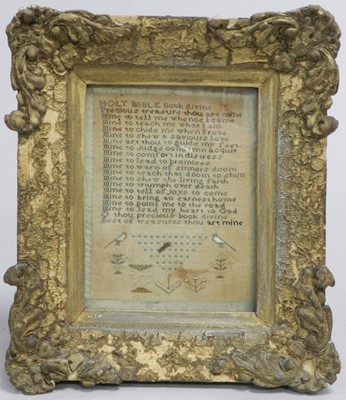 HOLY BIBLE Book divine
Precious treasure thou art mine
Mine to tell me whence I came
Mine to teach me what I am
Mine to chide me when I rove
Mine to shew a saviours love
Mine art thou to guide my feet
Mine to Judge condemn acquit
Mine to comfort in distress
Mine to lead to promises
Mine to warn of sinners doom
Mine to teach that doom to shun
Mine to shew the living faith
Mine to triumph over death
Mine to tell of joys to come
Mine to bring an earnest home
Mine to point me to the road
Mine to lead my heart to God
O thou precious book divine
Best of treasures thou art mine